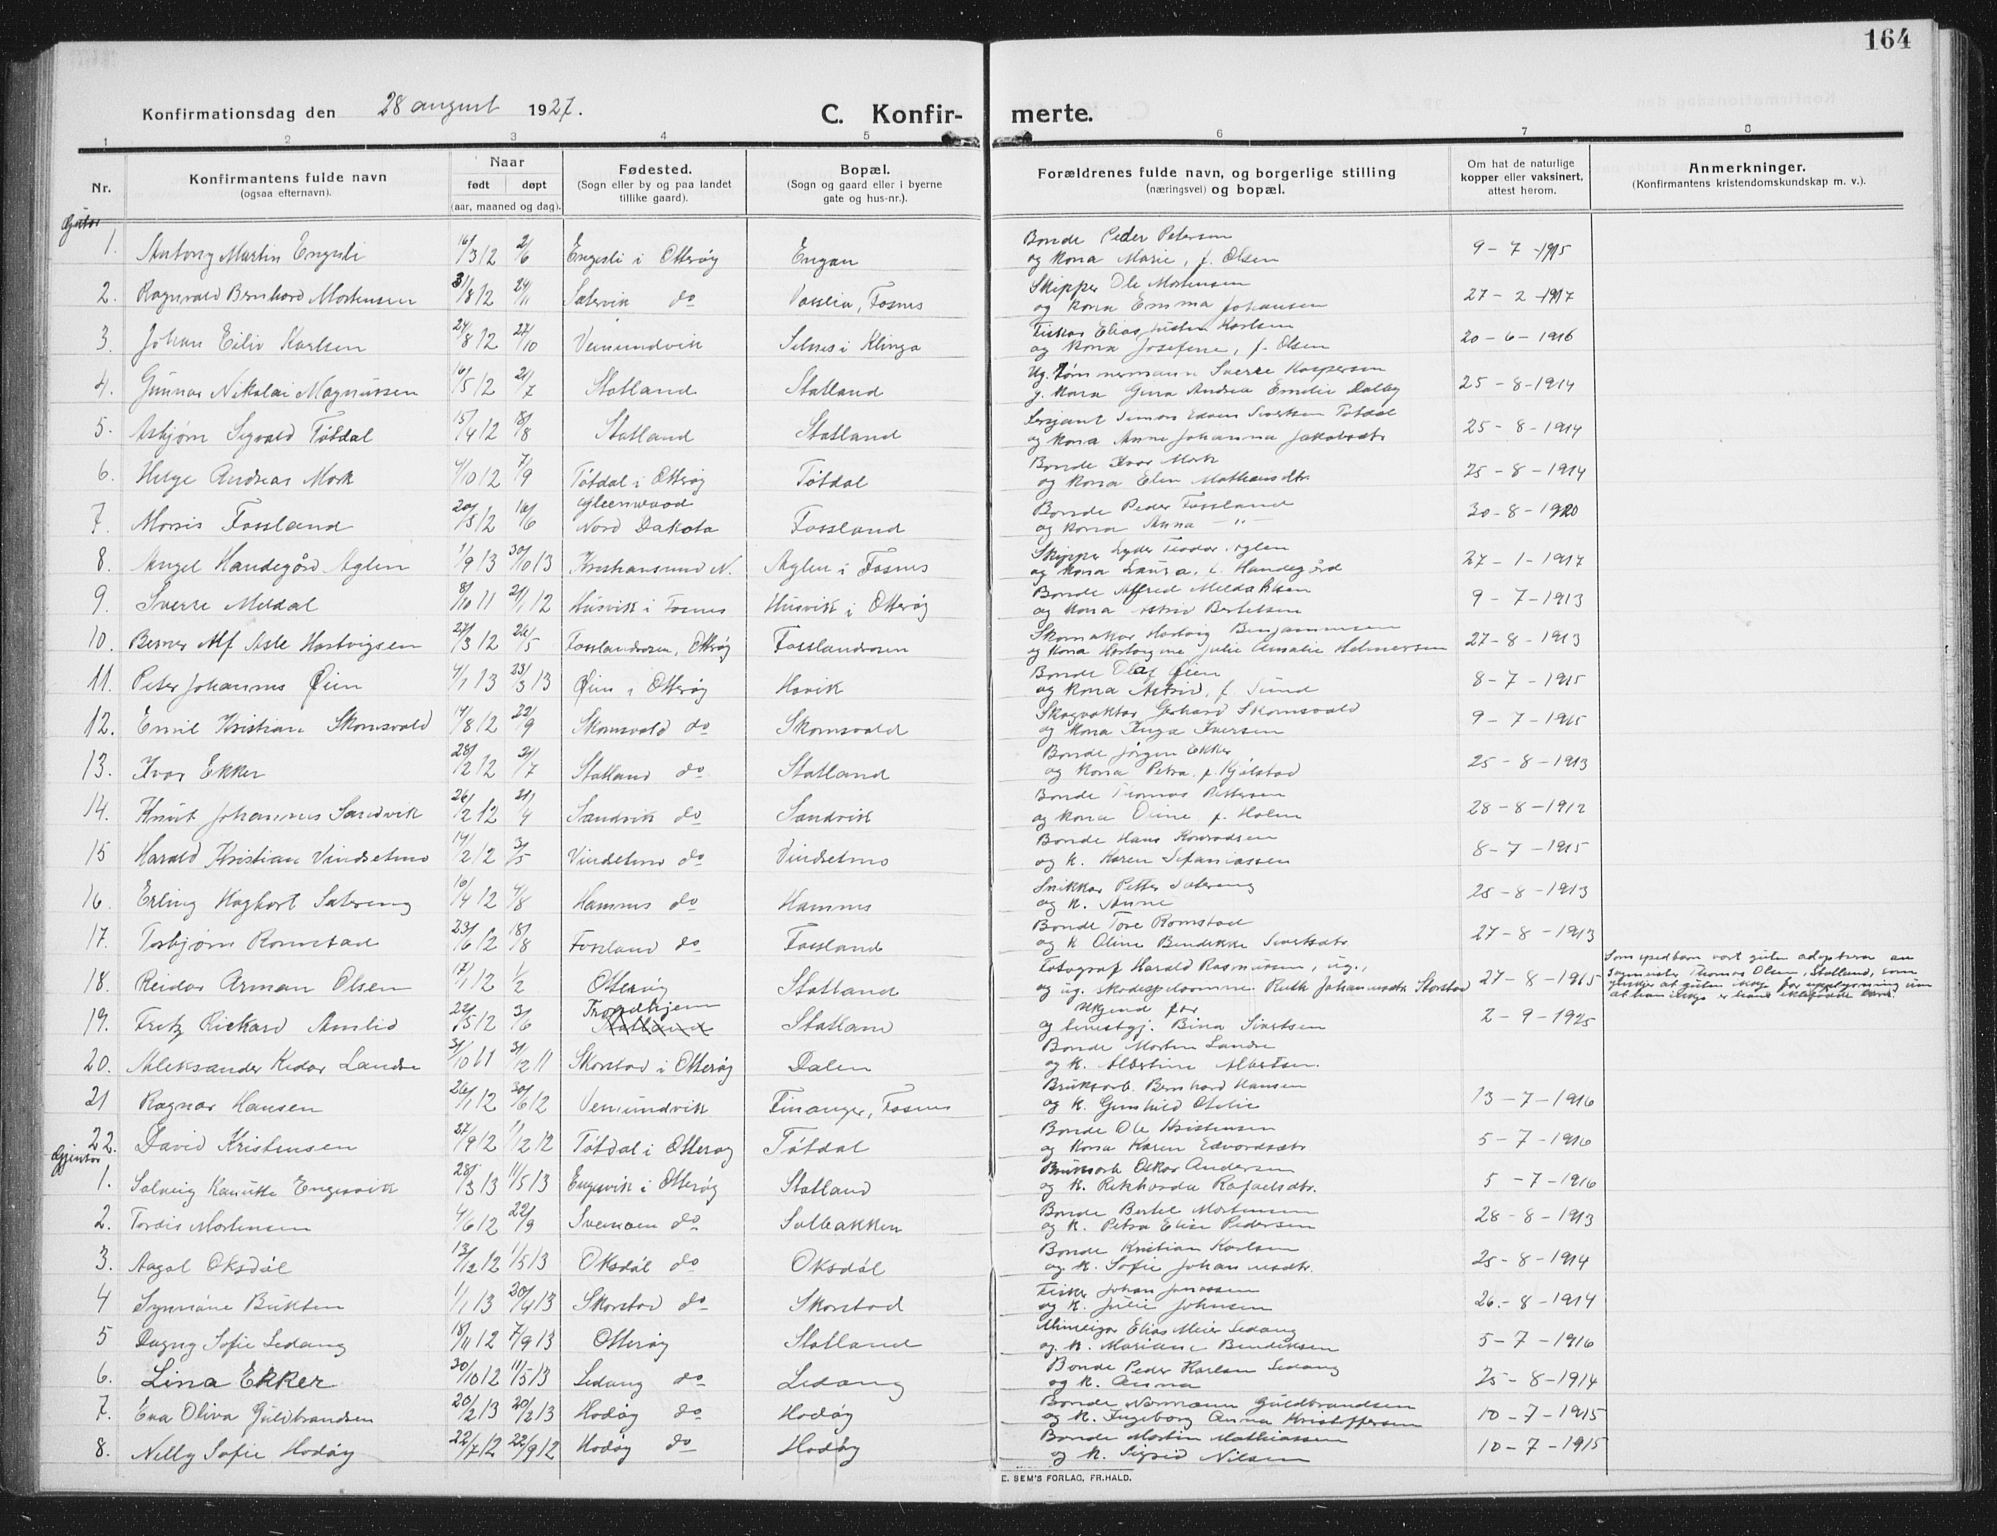 164
Konfirmationsdag den 28 august 1927. C. Konfir- merte.
1 2 3 4 5 6 7 8
Nr.
Konfirmantens fulde navn
(ogsaa efternavn).
Naar
født døpt
(aar, maaned og dag).
Fødested.
(Sogn eller by og paa landet
tillike gaard).
Bopæl.
(Sogn og gaard eller i byerne
gate og hus-nr.).
Forældrenes fulde navn, og borgerlige stilling
(næringsvei) og bopæl.
Om hat de naturlige
kopper eller vaksinert,
attest herom.
Anmerkninger.
(Konfirmantens kristendomskundskap m. v.).
Gutar
Bonde Peder Petersen
1. Antony Martin Engsli 16/3 12 2/6 Engsli i Otterøy Engan og kona Marie, f. Olsen 9-7-1915
Skipper Ole Mortensen
2. Ragnvald Bernhard Mortensen 31/8 12 24/11 Sætervik do Vasslia, Fosnes og kona Emma Johansen 27-2-1917
Fiskar Elias Justin Karlsen
3. Johan Eiliv Karlsen 24/8 12 27/10 Vemundvik Selnes i Klinga og kona Josefine, f. Olsen 20-6-1916
Ug. Tømmermann Sverre Kaspersen
4. Gunnar Nikolai Magnussen 16/5 12 21/7 Statland Statland g. kona Gina Andrea Emilie Dalby 25-8-1914
Sersjant Simon Edvin Sivertsen Tøtdal
5. Asbjørn Sigvald Tøtdal 15/4 12 18/8 Statland Statland og kona Anne Johanna Jakobsdtr. 25-8-1914
Bonde Ivar Mork
6. Helge Andreas Mork 4/10 12 7/9 Tøtdal i Otterøy Tøtdal og kona Elen Mathiasdtr. 25-8-1914
Gleenwood Bonde Peder Fossland
7. Morris Fossland 20/3 12 16/6 Nord Dakota Fossland og kona Anna -"- 30-8-1920
Skipper Lyder Teodor Aglen
8. Angel Handegård Aglen 1/9 13 30/10 13 Kristiansund N. Aglen i Fosnes og kona Laura, f. Handegård 27-1-1917
Bonde Alfred Meldal
9. Sverre Meldal 8/10 11 21/1 12 Husvik i Fosnes Husvik i Otterøy og kona Astrid Bertelsen 9-7-1913
Skomakar Hartvig Benjaminsen
10. Berner Alf Asle Hartvigsen 27/3 12 26/5 Fosslandrosen, Otterøy Fosslandrosen og kona Hartvigine Julie Amalie Helmersen 27-8-1913
Bonde Olaf Øien
11. Peter Johannes Øien 4/1 13 23/3 13 Øien i Otterøy Hovik og kona Astrid, f. Sund 8-7-1915
Skogvaktar Gerhard Skomsvold
12. Emil Kristian Skomsvold 14/8 12 22/9 Skomsvold do Skomsvold og kona Inga Iversen 9-7-1915
Bonde Jørgen Ekker
13. Ivar Ekker 28/2 12 21/7 Statland do Statland og kona Petra f. Kjølstad 25-8-1913
Bonde Thomas Pettersen
14. Knut Johannes Sandvik 26/2 12 21/4 Sandvik do Sandvik og kona Oline f. Holm 28-8-1912
Bonde Hans Konradsen
15 Harald Kristian Vindsetmo 14/2 12 3/5 Vindsetmo do Vindsetmo og k. Karen Sefaniassen 8-7-1915
Snikkar Petter Sætereng
16. Erling Hagbart Sætereng 10/4 12 4/8 Hamnes do Hamnes og k. Anne 25-8-1913
Bonde Tore Romstad
17. Torbjørn Romstad 23/6 12 18/8 Fossland do Fossland og k Oline Bendikke Sivertsdtr. 27-8-1913
Fotograf Harald Rasmussen, ug.,
18. Reidar Arman Olsen 17/1 12 1/2 Otterøy Statland og ug. skodespelarinne Ruth Johannesdtr. Skorstad 27-8-1915
Som spedbarn vart guten adoptera av
Sagmeister Thomas Olsen, Statland, som
ynskjer at guten ikkje får upplysning um
at han ikkje er hans ektefødde barn.
Trondhjem Ukjend far
19. Fritz Rickard Amlid 22/5 12 3/6 Statland Statland og tenestgj. Bina Sivertsen 2-9-1925
Bonde Morten Landre
20. Aleksander Kedar Landre 31/10 11 31/12 11 Skorstad i Otterøy Dalen og k. Albertine Albertsen.
Bruksarb. Bernhard Hansen
21 Ragnar Hansen 26/1 12 30/6 12 Vemundvik Finanger, Fosnes og k. Gunhild Otelie 13-7-1916
Bonde Ole Kristensen
22. David Kristensen 27/9 12 1/12 12 Tøtdal i Otterøy Tøtdal og kona Karen Edvardsdtr. 5-7-1916
Gjentor
Bruksarb Oskar Andersen
1. Solveig Kanutte Engesvik 28/3 13 11/5 13 Engesvik i Otterøy Statland og k. Rikharda Rafaelsdtr. 5-7-1916
Bonde Bertel Mortensen
2. Tordis Mortensen 4/6 12 22/9 Svemoen do Solbakken og k. Petra Elise Pedersen 28-8-1913
Bonde Kristian Karlsen
3. Aagot Oksdøl 13/12 12 1/5 13 Oksdøl do Oksdøl og k. Sofie Johannesdtr. 25-8-1914
Fisker Johan Jonassen
4 Synnøve Bukten 1/1 13 20/4 13 Skorstad do Skorstad og k. Julie Johnsen 26-8-1914
Elias Meier Sedang
5 Dagny Sofie Sedang 18/11 12 7/9 13 Otterøy Statland og k. Mariane Bendiksen 5-7-1916
Bonde Peder Karlsen Sedang
6. Lina Ekker 30/10 12 11/5 13 Sedang do Sedang og k. Anna 25-8-1914
Bonde Normann Guldbrandsen
7. Eva Oliva Guldbrandsen 20/2 13 20/2 13 Hodøy do Hodøy og k. Ingeborg Anna Kristoffersen 10-7-1915
Bonde Martin Mathiassen
8. Nelly Sofie Hodøy 22/7 12 22/9 12 Hodøy do Hodøy og k. Sigrid Nilsen 10-7-1915
E. SEM'S FORLAG, FR.HALD.